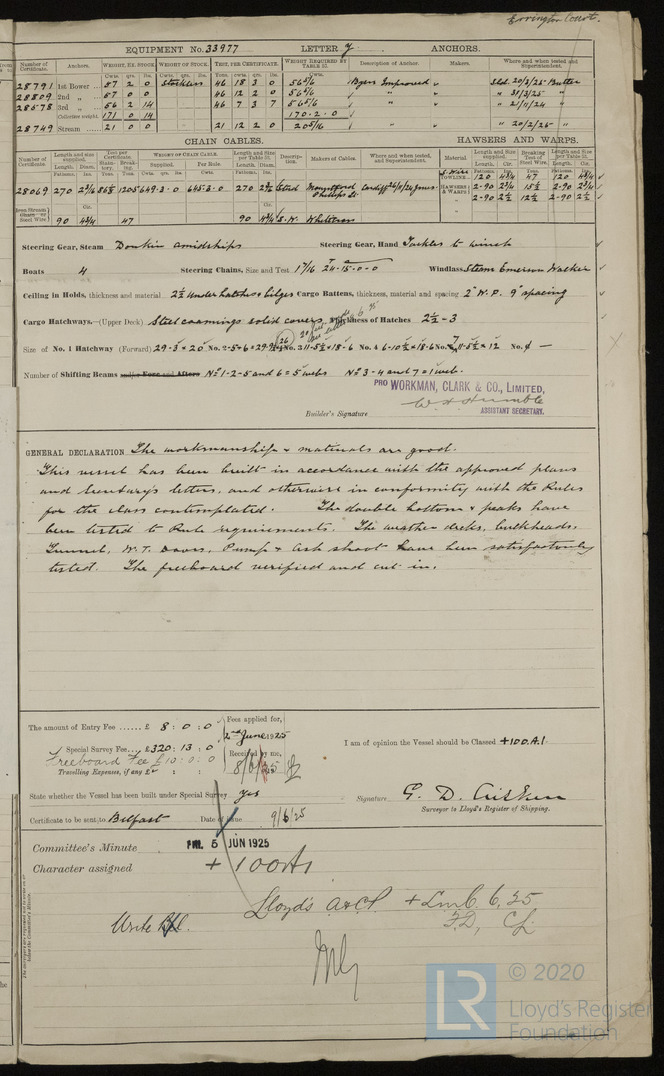 Errington Court.
EQUIPMENT No. 33977 LETTER y ANCHORS.
Number of Certificate. Anchors. WEIGHT, EX. STOCK. WEIGHT OF STOCK. TEST, PER CERTIFICATE. WEIGHT REQUIRED BY TABLE 31. Description of Anchor. Makers. Where and when tested and Superintendent.
28791 1st Bower 57 2 0 Stockless 46 18 3 0 56 5/6 Byers Improved 20/2/25 Butler
28809 2nd 57 0 0 46 12 2 0 56 5/6 " 31/3/25 "
28578 3rd 56 2 14 46 7 3 7 56 5/6 " 21/11/24 "
Collective weight. 171 0 14 170 . 2 . 0
28749 Stream 21 0 0 21 12 2 0 20 5/16 " 20/2/25 "
CHAIN CABLES. HAWSERS AND WARPS.
Number of Certificate. Length and size supplied. Test per Certificate. WEIGHT OF CHAIN CABLE. Length and Size per Table 31. Description. Makers of Cables. Where and when tested, and Superintendent. Material Length and Size supplied. Breaking Test of Steel Wire. Length and Size per Table 31.
28069 270 2 3/16 86 5/8 120 5 649 . 3 . 0 645 . 2 . 0 270 Cardiff TOWLINE 120 4 3/4 47 120 4 3/4
HAWSERS & WARPS 2-90 2 3/4 15 1/2 2-90 2 3/4
2-90 2 1/2 12 1/2 2-90 2 1/2
90 4 3/4 47 90 4 3/4 S.W.
Steering Gear, Steam Donkin amidships Steering Gear, Hand Tackles to winch
Boats 4 Steering Chains, Size and Test 1 1/16 24-15-0-0 Windlass Steam Emerson Walker
Ceiling in Holds, thickness and material 2 1/2 under hatches & bilges Cargo Battens, thickness, material and spacing 2" W.P. 9" spacing
Cargo Hatchways.—(Upper Deck) Steel coamings solid covers Thickness of Hatches 2 1/2 - 3
Size of No. 1 Hatchway (Forward) 29-3 × 20 No. 2-5+6 = 29-9 No. 3 11-5 1/2 × 18-6 No. 4 6-10 1/2 × 18-6 No. 7 11-5 1/2 × 12 No. —
Number of Shifting Beams and/or Fore and Afters No 1-2-5 and 6 = 5 webs No 3-4 and 7 = 1 web.
PRO WORKMAN, CLARK & CO., LIMITED,
Builder's Signature ASSISTANT SECRETARY.
GENERAL DECLARATION The workmanship & materials are good.
This vessel has been built in accordance with the approved plans
and Secretary's letters, and otherwise in conformity with the Rules
for the class contemplated. The double bottom & peaks have
been tested to Rule requirements. The weather decks, bulkheads,
Tunnel, W.T. Doors, Pump & Ash shoot have been satisfactorily
tested. The freeboard verified and cut in.
The amount of Entry Fee ...... £ 8 : 0 : 0 Fees applied for,
2nd June 1925
Special Survey Fee.... £ 320 : 13 : 0 Received by me, I am of opinion the Vessel should be Classed +100.A.1
Freeboard Fee £10 : 0 : 0
Travelling Expenses, if any £ : :
State whether the Vessel has been built under Special Survey Yes Signature G. D. Aitken
Surveyor to Lloyd's Register of Shipping.
Certificate to be sent to Belfast Date of issue 9/6/25
Committee's Minute FRI. 5 JUN 1925
Character assigned + 100A1
Lloyd's A&CP + LMC 6,25
F.D, CL
Write Bel.
© 2020
LR Lloyd's Register
Foundation